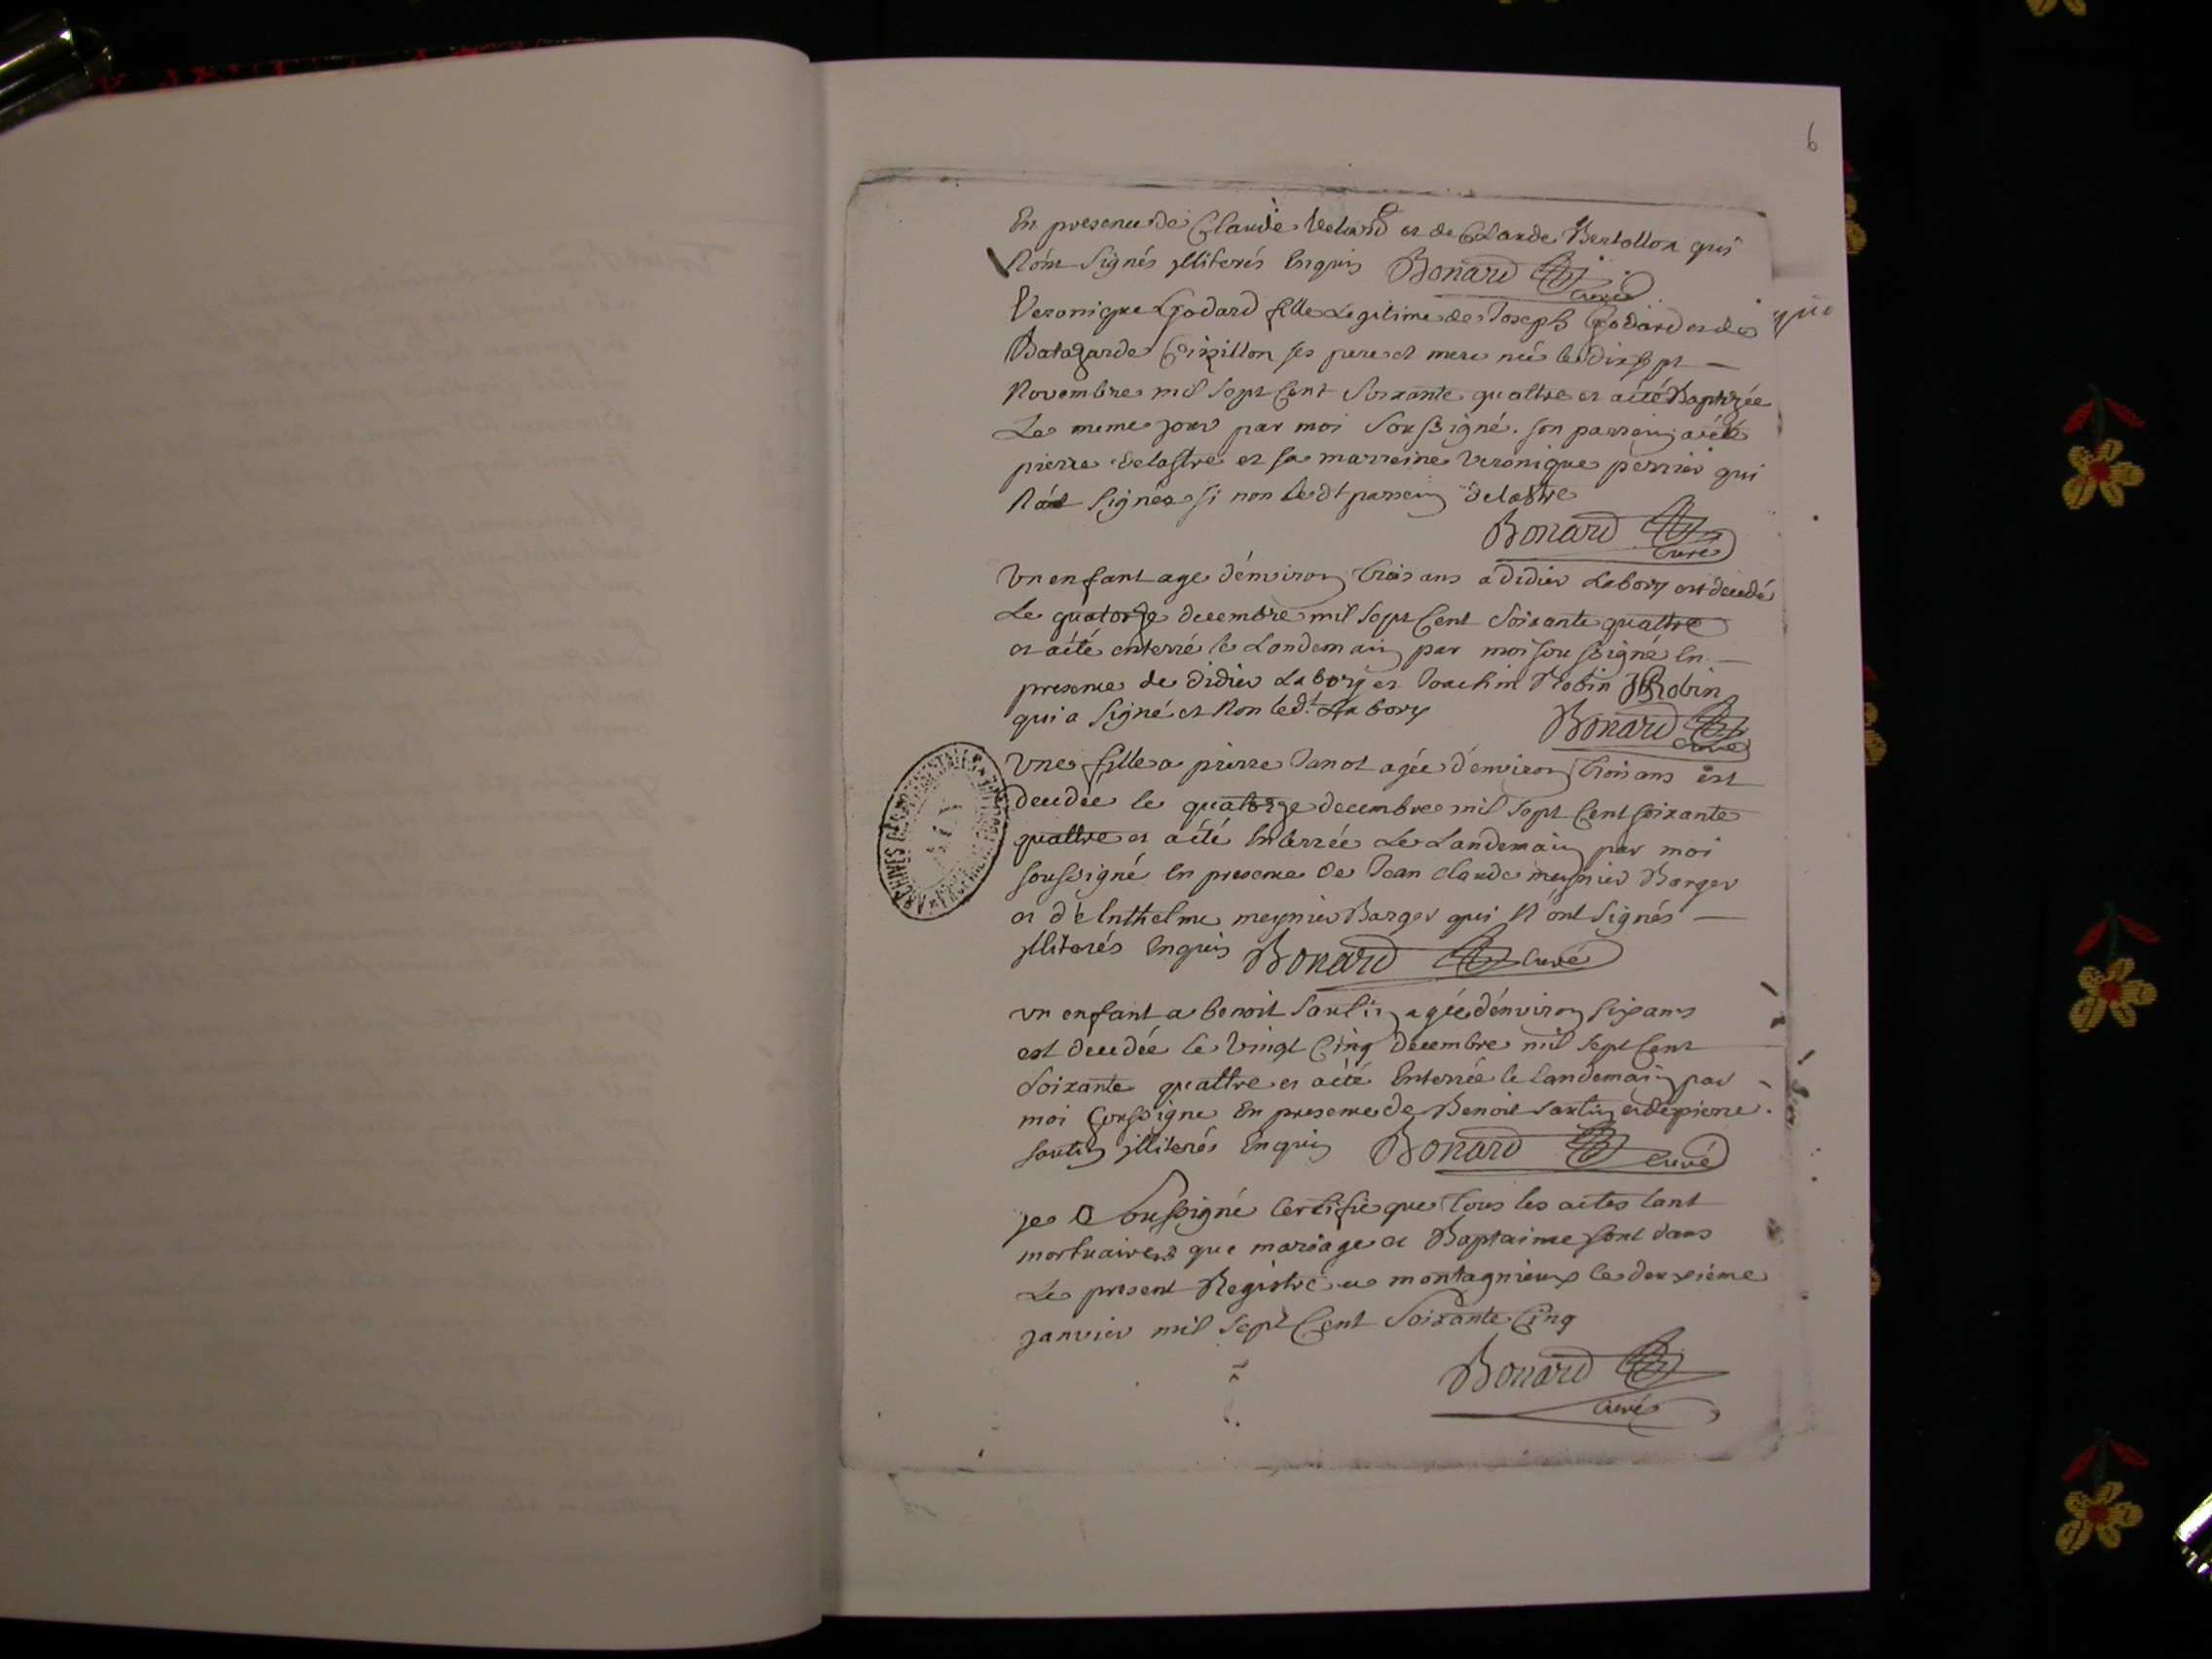 6
En presence de Claude Velard et de Claude Bertollon qui
N'ont Signés illiterés Enquis Bonard
Curé
Veronique Godard fille Legitime de Joseph Godard et de
Crizillon ses pere et mere née le dix sept
Novembre mil sept Cent Soixante quattre et aété Baptizée
Le meme jour par moi Soussigné. son parrein aété
pierre delastre et sa marreine Veronique perrier qui
N'ont Signés si non ledt parrein delastre
Bonard
Curé
Un enfant age d'environ trois ans a Didier Labory est decedé
Le quatorze decembre mil sept Cent Soixante quattre
et aété enterré le Landemain par moi sousigné En
presence de Didier Labory et Joachim Robin JRobin
qui a Signé et Non led.t Labory
Bonard
Curé
Une fille a pierre Janot agée d'environ trois ans est
decedée le quatorze decembre mil sept Cent soixante
quattre et aété Enterrée Le Landemain par moi
sousigné En presence de Jean Claude meynier Barger
et d'Enthelme meynier Barger qui N'ont Signés
illiterés Enquis Bonard Curé
un enfant a benoit Sautin agée d'environ six ans
est decedée le Vingt Cinq decembre mil sept Cent
Soixante quattre et aété Enterrée le landemain par
moi Sousigne En presence de Benoit Sautin et de pierre
Sautin illiterés Enquis Bonard Curé
je Soussigné Certifie que tous les actes tant
mortuaires que mariage et Baptaime sont dans
Le present Registre a montagnieux le deuxieme
janvier mil Sept Cent Soixante Cinq
Bonard
Curé